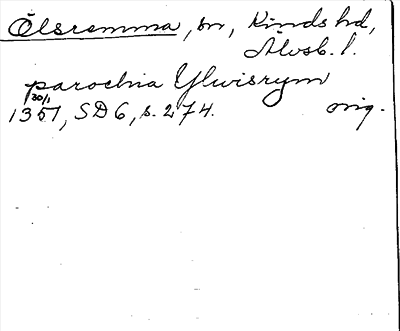 Ölsremma, sn, Kinds hd,
Älvsb. l.
parochia Ylwisrym
30/1
1351, SD 6, s. 274. orig.